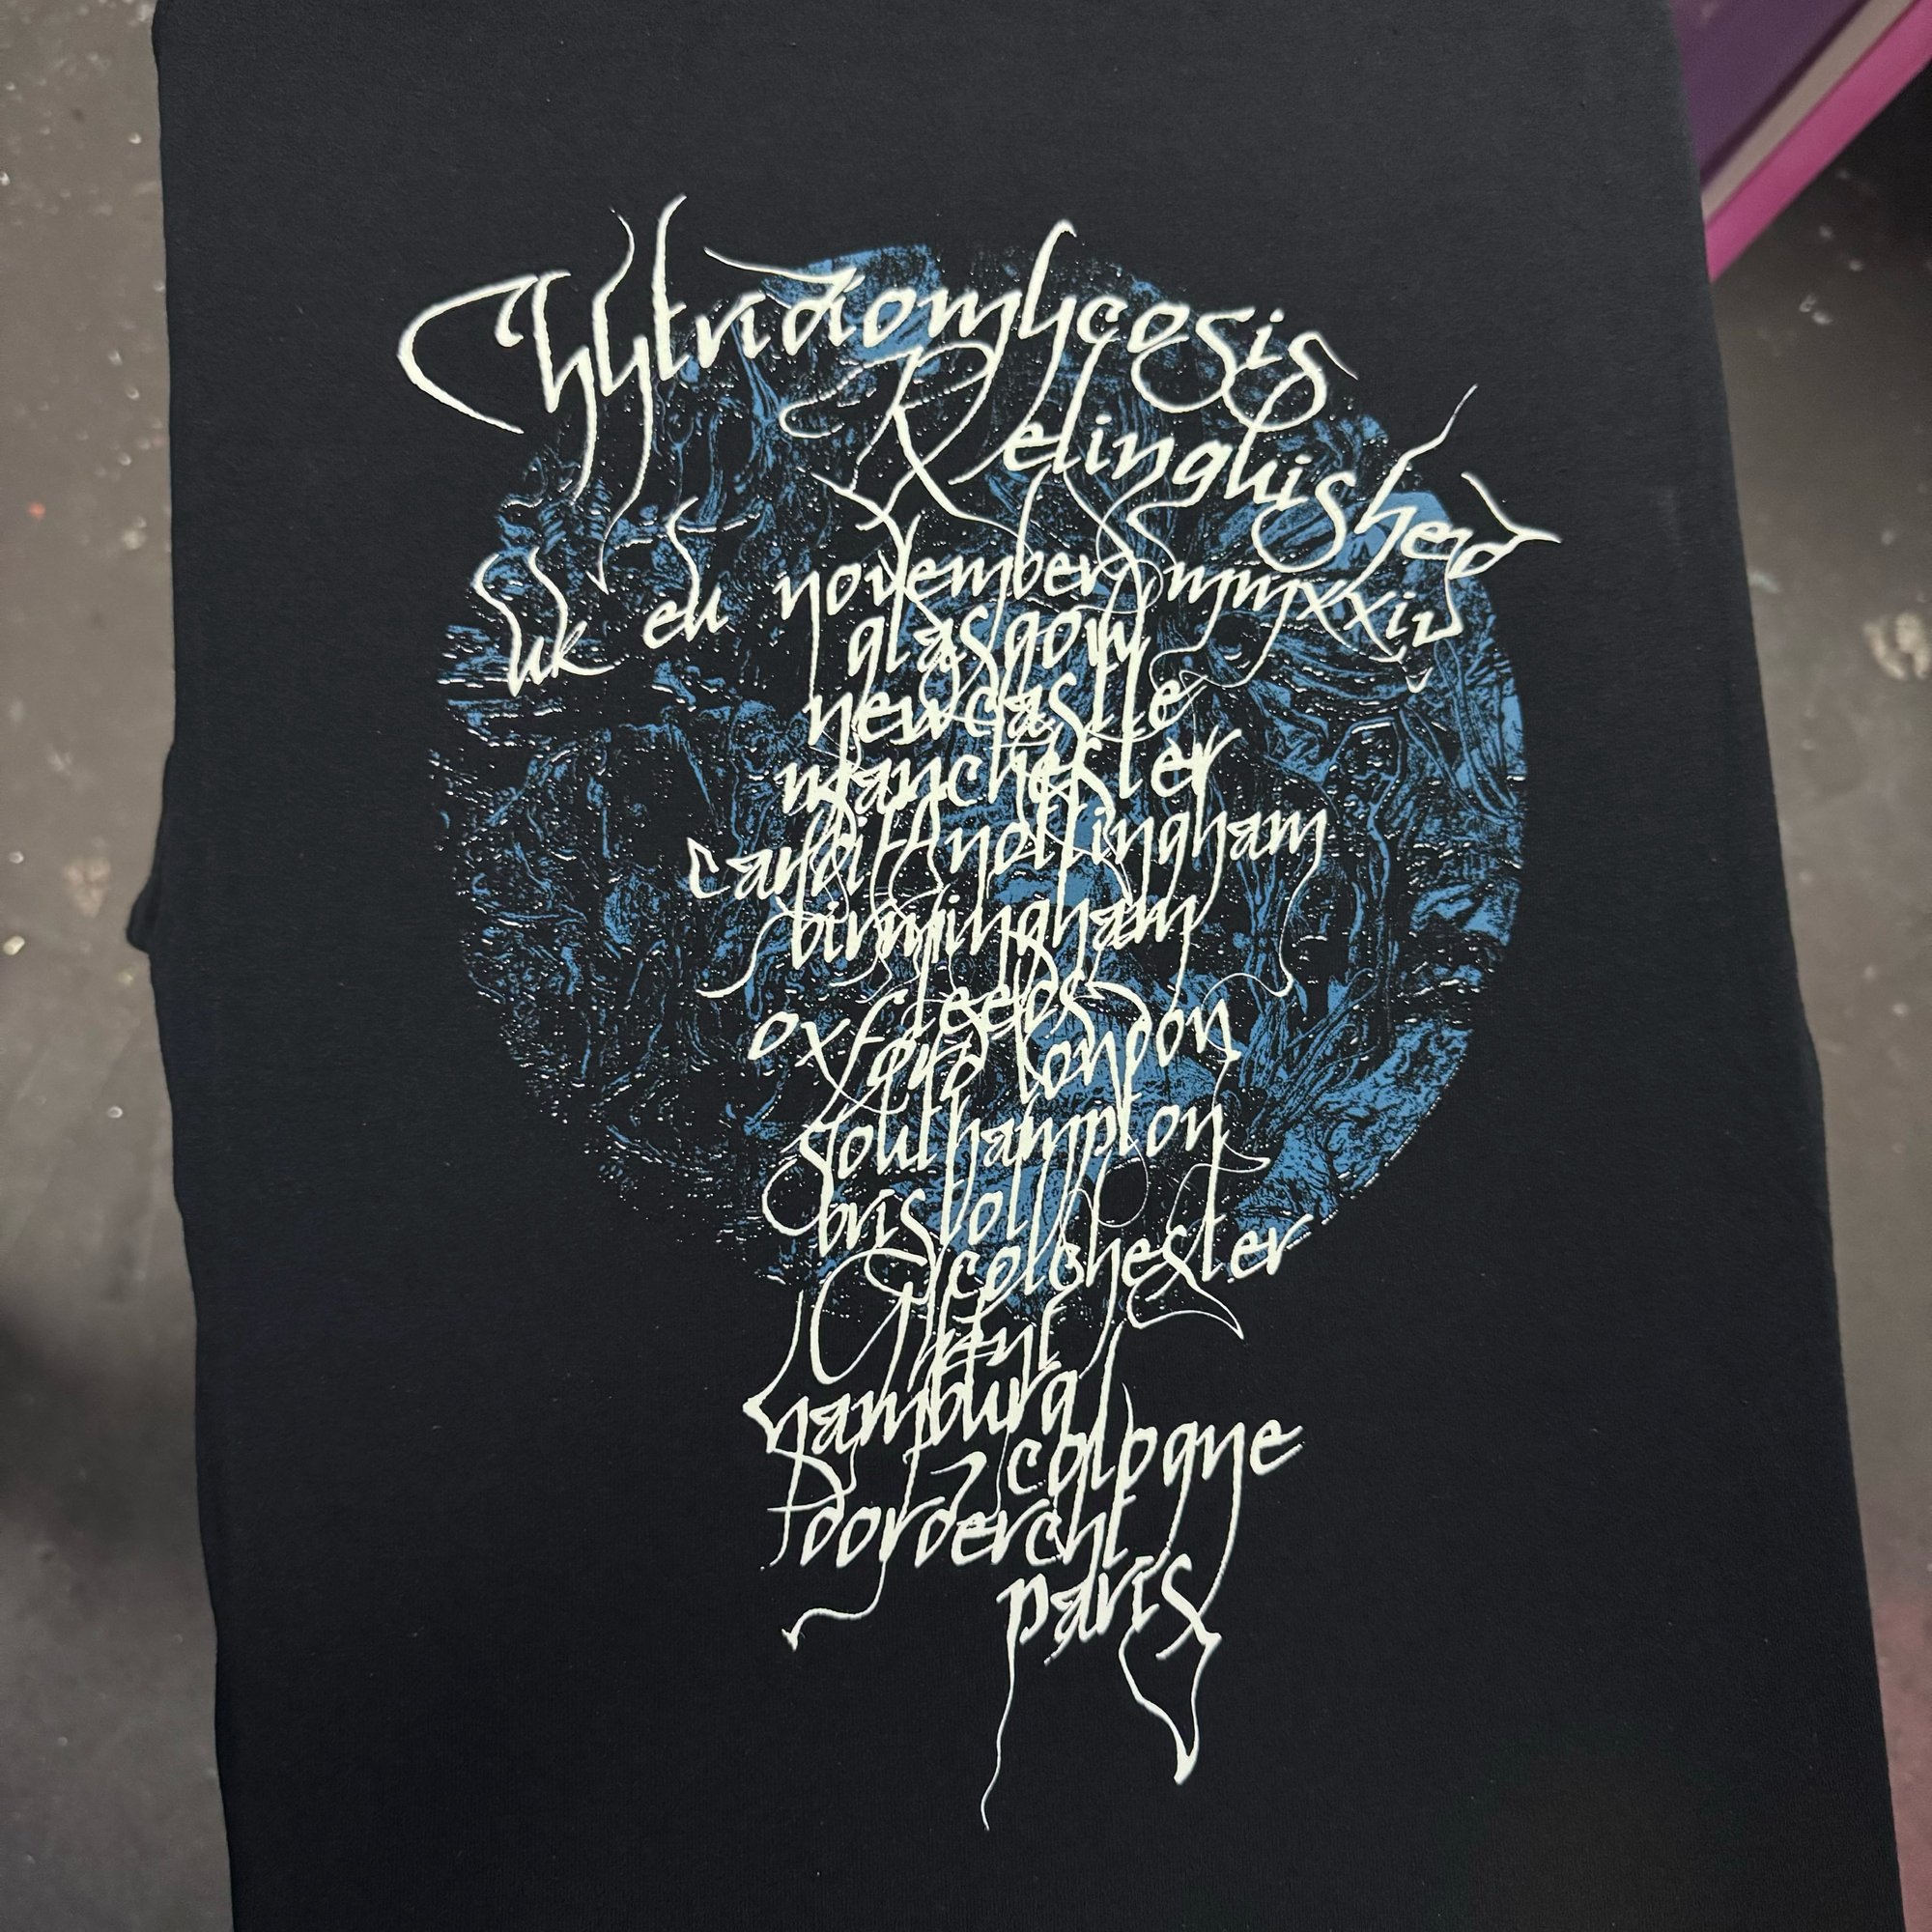 Chytridiomycosis
Relinquished
uk eu november mmxxiv
glasgow
newcastle
manchester
cardiff nottingham
birmingham
leeds
oxford london
southampton
bristol
colchester
ghent
hamburg
cologne
dordercht
paris